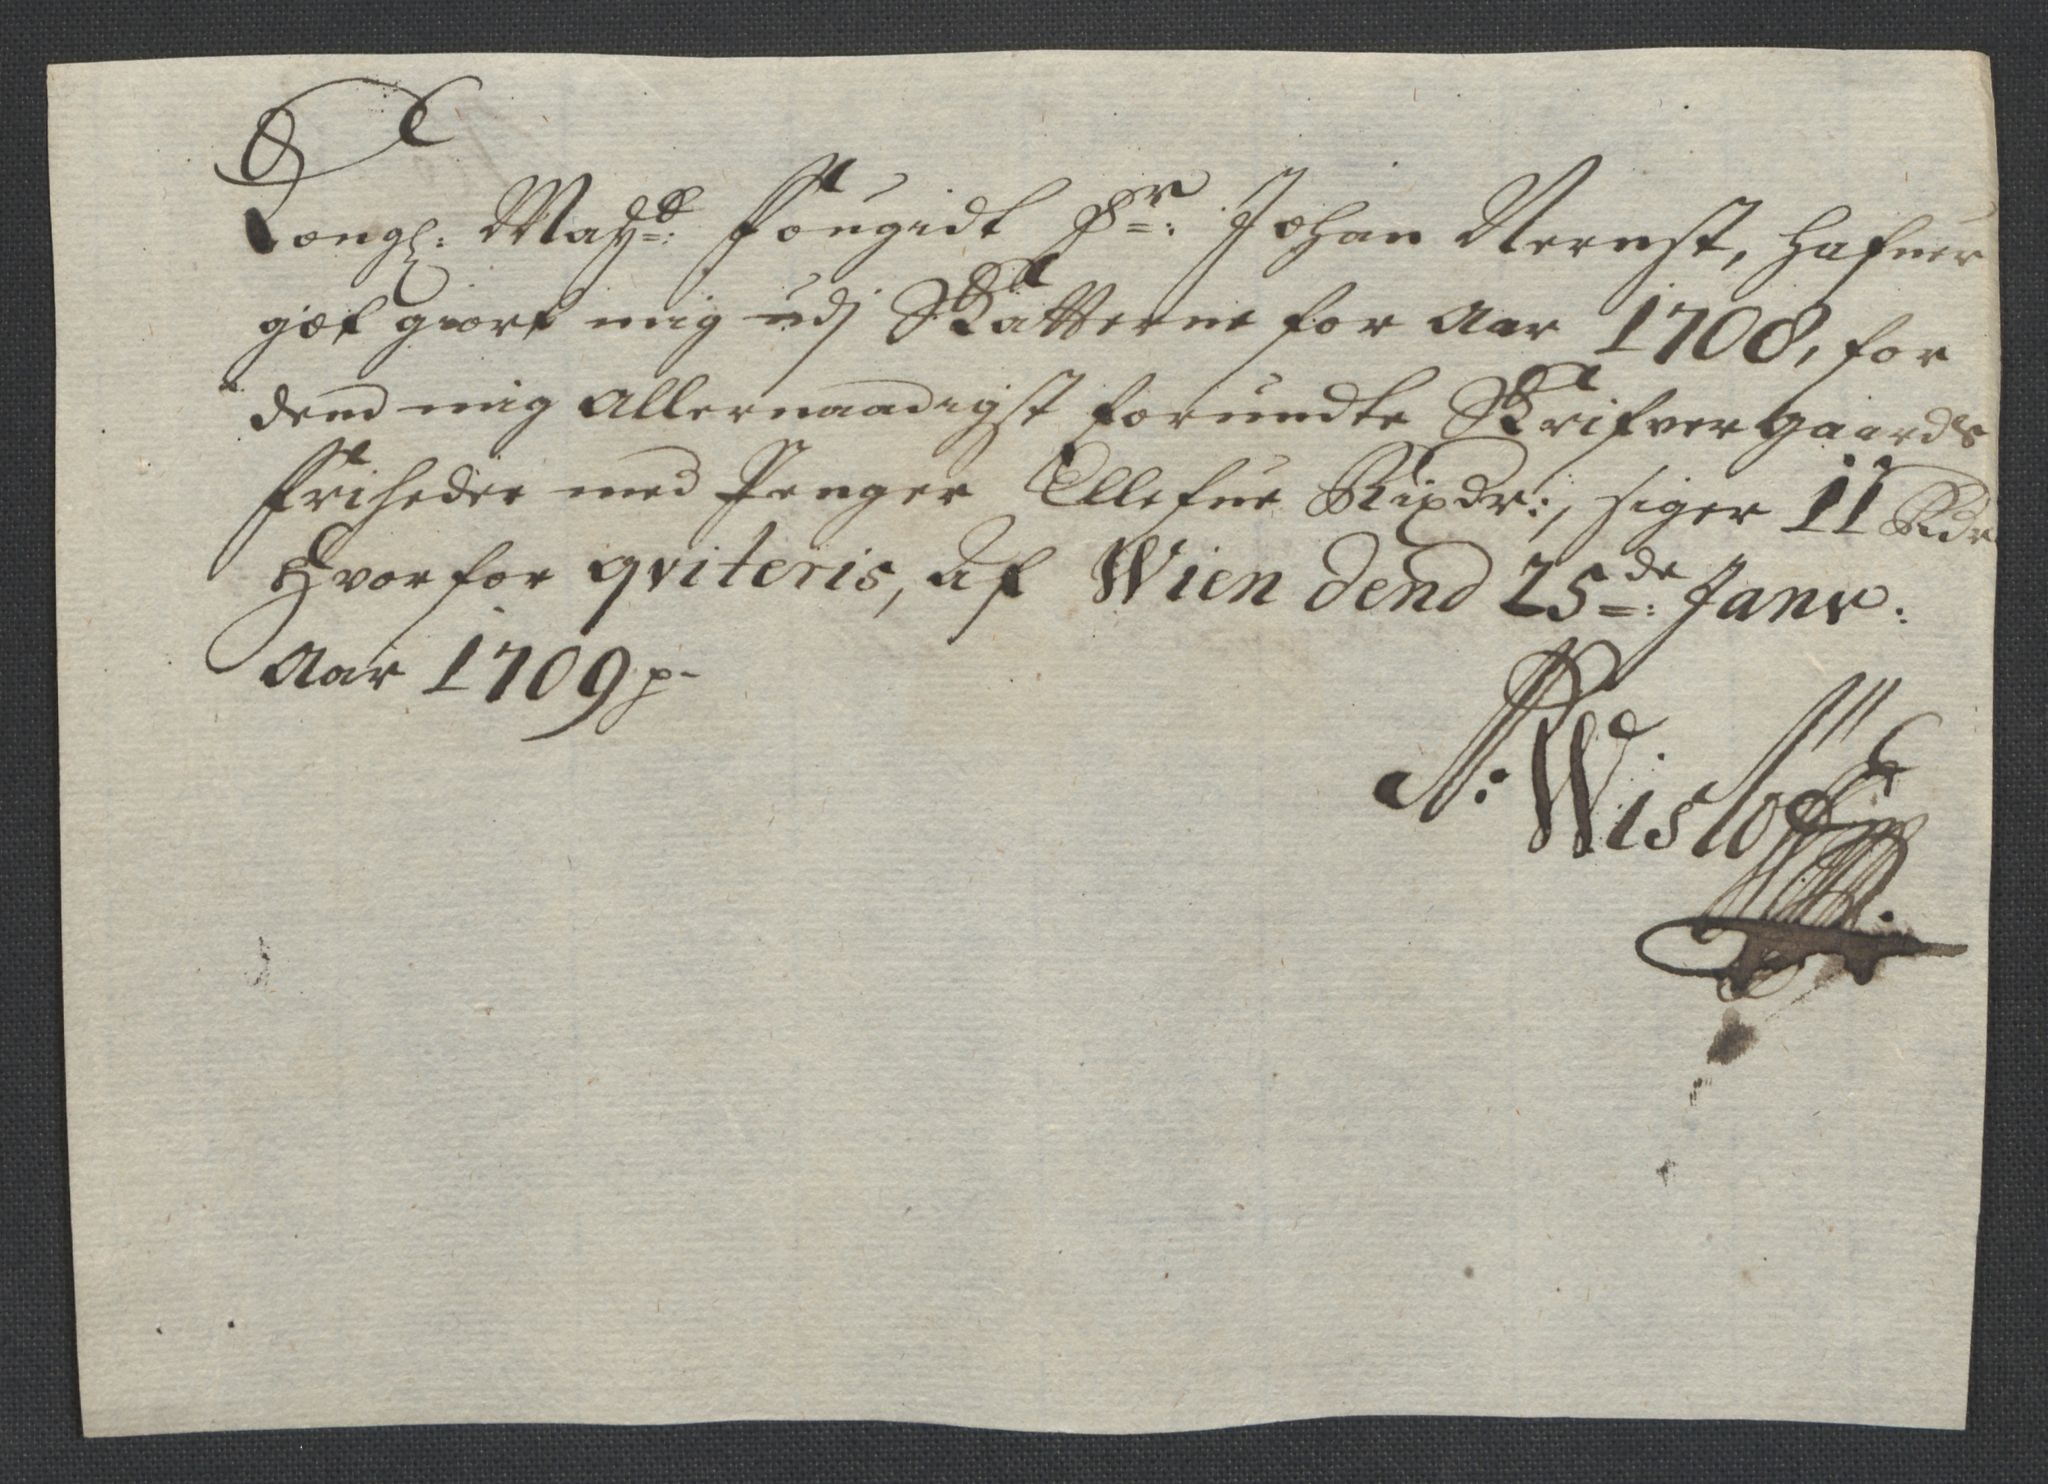 Kongl: Mayts: Fougidt Hr: Johan Nernst, hafuer
got giort mig udj Skatterne for Aar 1708, for
dend mig allernaadigst forundte Skrifvergaards
Friheder med Penger Ellefue Rixdr:, siger 11 Rdr
Hvorfor qviteris, af Wien dend 25de: Janv:
Aar 1709 p-
A: Wisløff